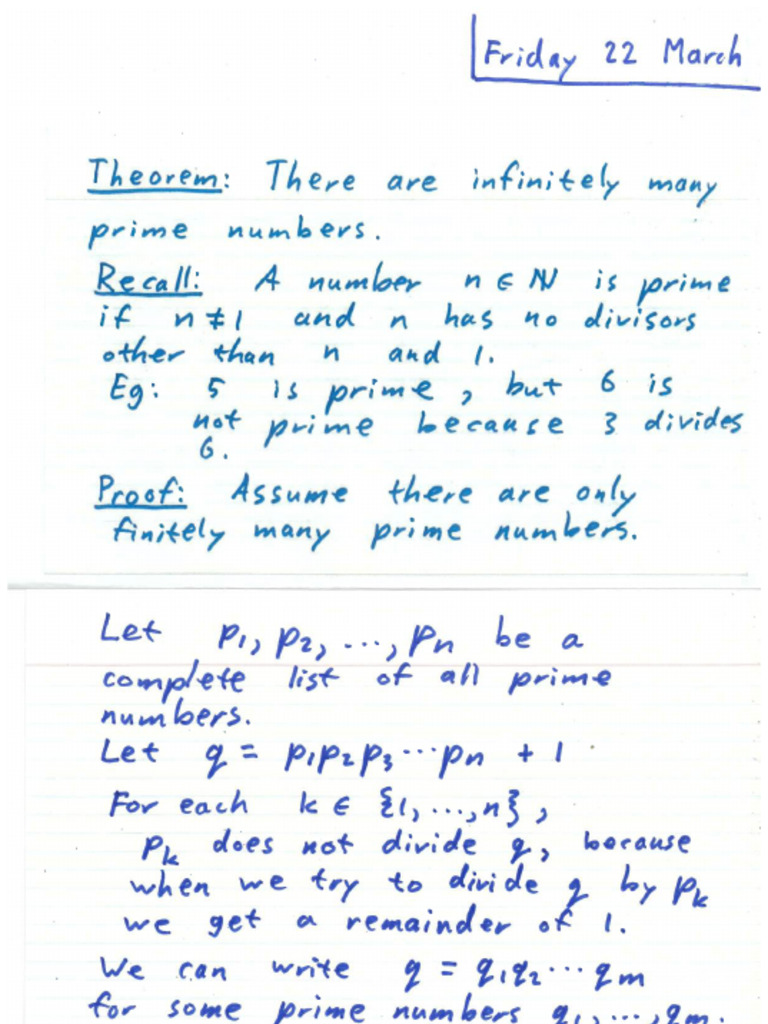 Friday 22 March
Theorem: There are infinitely many
prime numbers.
Recall: A number n ∈ ℕ is prime
if n ≠ 1 and n has no divisors
other than n and 1.
Eg: 5 is prime, but 6 is
not prime because 3 divides
6.
Proof: Assume there are only
finitely many prime numbers.
Let p₁, p₂, ..., pₙ be a
complete list of all prime
numbers.
Let q = p₁p₂p₃···pₙ + 1
For each k ∈ {1, ..., n},
pₖ does not divide q, because
when we try to divide q by pₖ
we get a remainder of 1.
We can write q = q₁q₂···qₘ
for some prime numbers q₁, ..., qₘ.